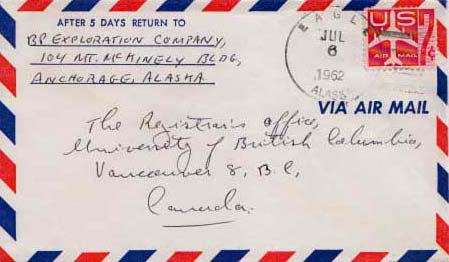 AFTER 5 DAYS RETURN TO
BP EXPLORATION COMPANY,
104 MT. McKINELY BLDG,
ANCHORAGE, ALASKA
EAGLE
JUL
6
1962
ALASKA
US
AIR MAIL
VIA AIR MAIL
The Registrar's office,
University of British Columbia,
Vancouver 8, B.C,
Canada.